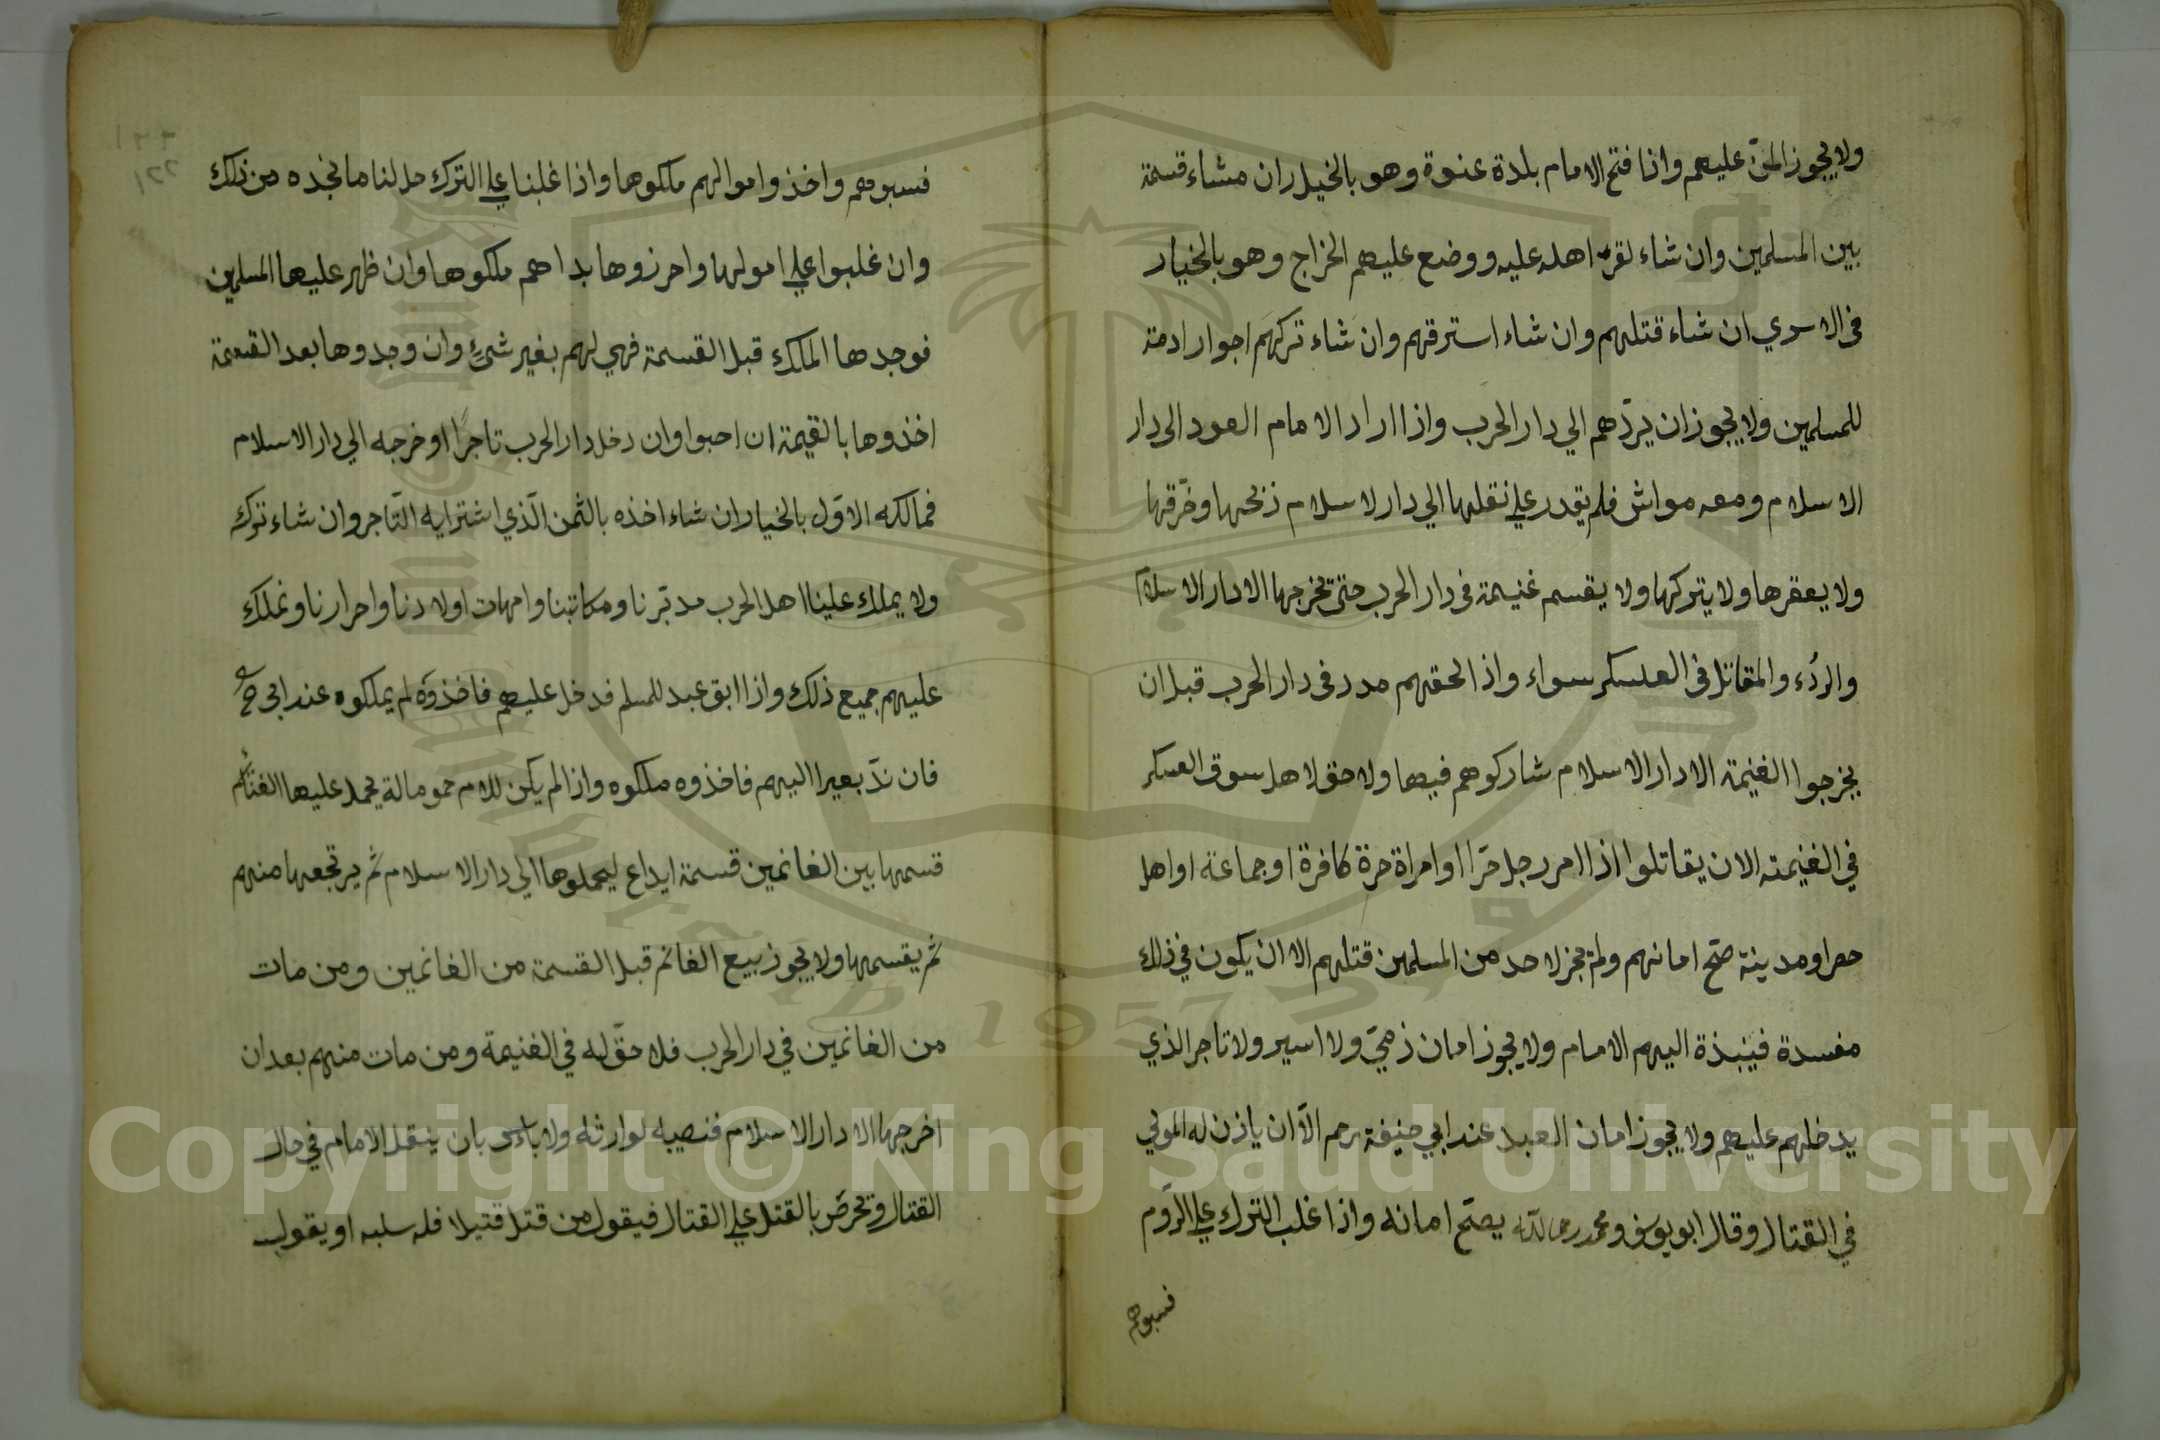 ولا يجوز المنّ عليهم واذا فتح الامام بلدة عنوة وهو بالخيار ان مشاء قسمة
بين المسلمين وان شاء لقرّ اهله عليه ووضع عليهم الخراج وهو بالخيار
فى الاسري ان شاء قتلهم وان شاء استرقهم وان شاء تركهم اجوار ادمة
للمسلمين ولا يجوز ان يردّهم الي دار الحرب واذا اراد الامام العود الى دار
الاسلام ومعه مواش فلم يقدر علي نقلها الي دار لاسلام ذبحها وحّرقها
ولا يعقرها ولا يتركها ولا يقسم غنيمة فى دار الحرب حتى يخرجها الا دار الاسلام
والردُء والمقاتل فى العسكر سواء واذا لحقهم مدد فى دار الحرب قبل ان
يخرجوا الغنيمة الا دار الاسلام شاركوهم فيها ولا حق لاهل سوق العسكر
في الغنيمة الا ان يقاتلوا اذا امر رجل حرّا او امراة حرة كافرة او جماعة او اهل
حصر او مدينة صحّ امانهم ولم يجز لاحد من المسلمين قتلهم الا ان يكون في ذلك
مفسدة فينبذة اليهم الامام ولا يجوز امان ذميّ ولا اسير ولا تاجر الذي
يدخلهم عليهم ولا يجوز امان العبد عند ابي حنيفة رحم الاّ ان ياذن له المولي
في القتال وقال ابو يوسف ومحمد رحمه الله يصحّ امانه واذا غلب الترك علي الرّوم
فسبوهم
فسبوهم واخذوا موالهم ملكوها واذا غلبنا علي الترك حل لنا ما نجده من ذلك
وان غلبوا علي امولها واحرزوها بداهم ملكوها وان ظهر عليها المسلمين
فوجدها المالك قبل القسمة فهي لهم بغير شيءٍ وان وجدوها بعد القسمة
اخذوها بالقيمة ان احبوا وان دخل دار الحرب تاجرًا اوخرجه الي دار الاسلام
فمالكه الاوّل بالخيار ان شاء اخذه بالثّمن الّذي اشترايه التّاجر وان شاء تركه
ولا يملك علينا اهل الحرب مدبّرنا ومكاتبنا وامهات اولادنا واحرارنا ونملك
عليهم جميع ذلك واذا ابق عبد للمسلم فدخل عليهم فاخذوه لم يملكوه عند ابى ح
فان ندّ بعيرا اليهم فاخذوه ملكوه واذا لم يكن للامام حمومالة يحمد عليها الغنائم
قسمها بين الغانمين قسمة ايداع ليحملوها الي دار الاسلام ثم يرتجعها منهم
ثم يقسمها ولا يجوز بيع الغانم قبل القسمة من الغانمين ومن مات
من الغانمين في دار الحرب فلا حقّ له في الغنيمة ومن مات منهم بعد ان
اخرجها الا دار الاسلام فنصيبه لوارثه ولا باءس بان ينفل الامام في حال
القتال وتحرض بالقتل علي القتال فيقول من قتل قتيلا فله سلبه او يقول
٢٢١
Copyright © King Saud University
1957